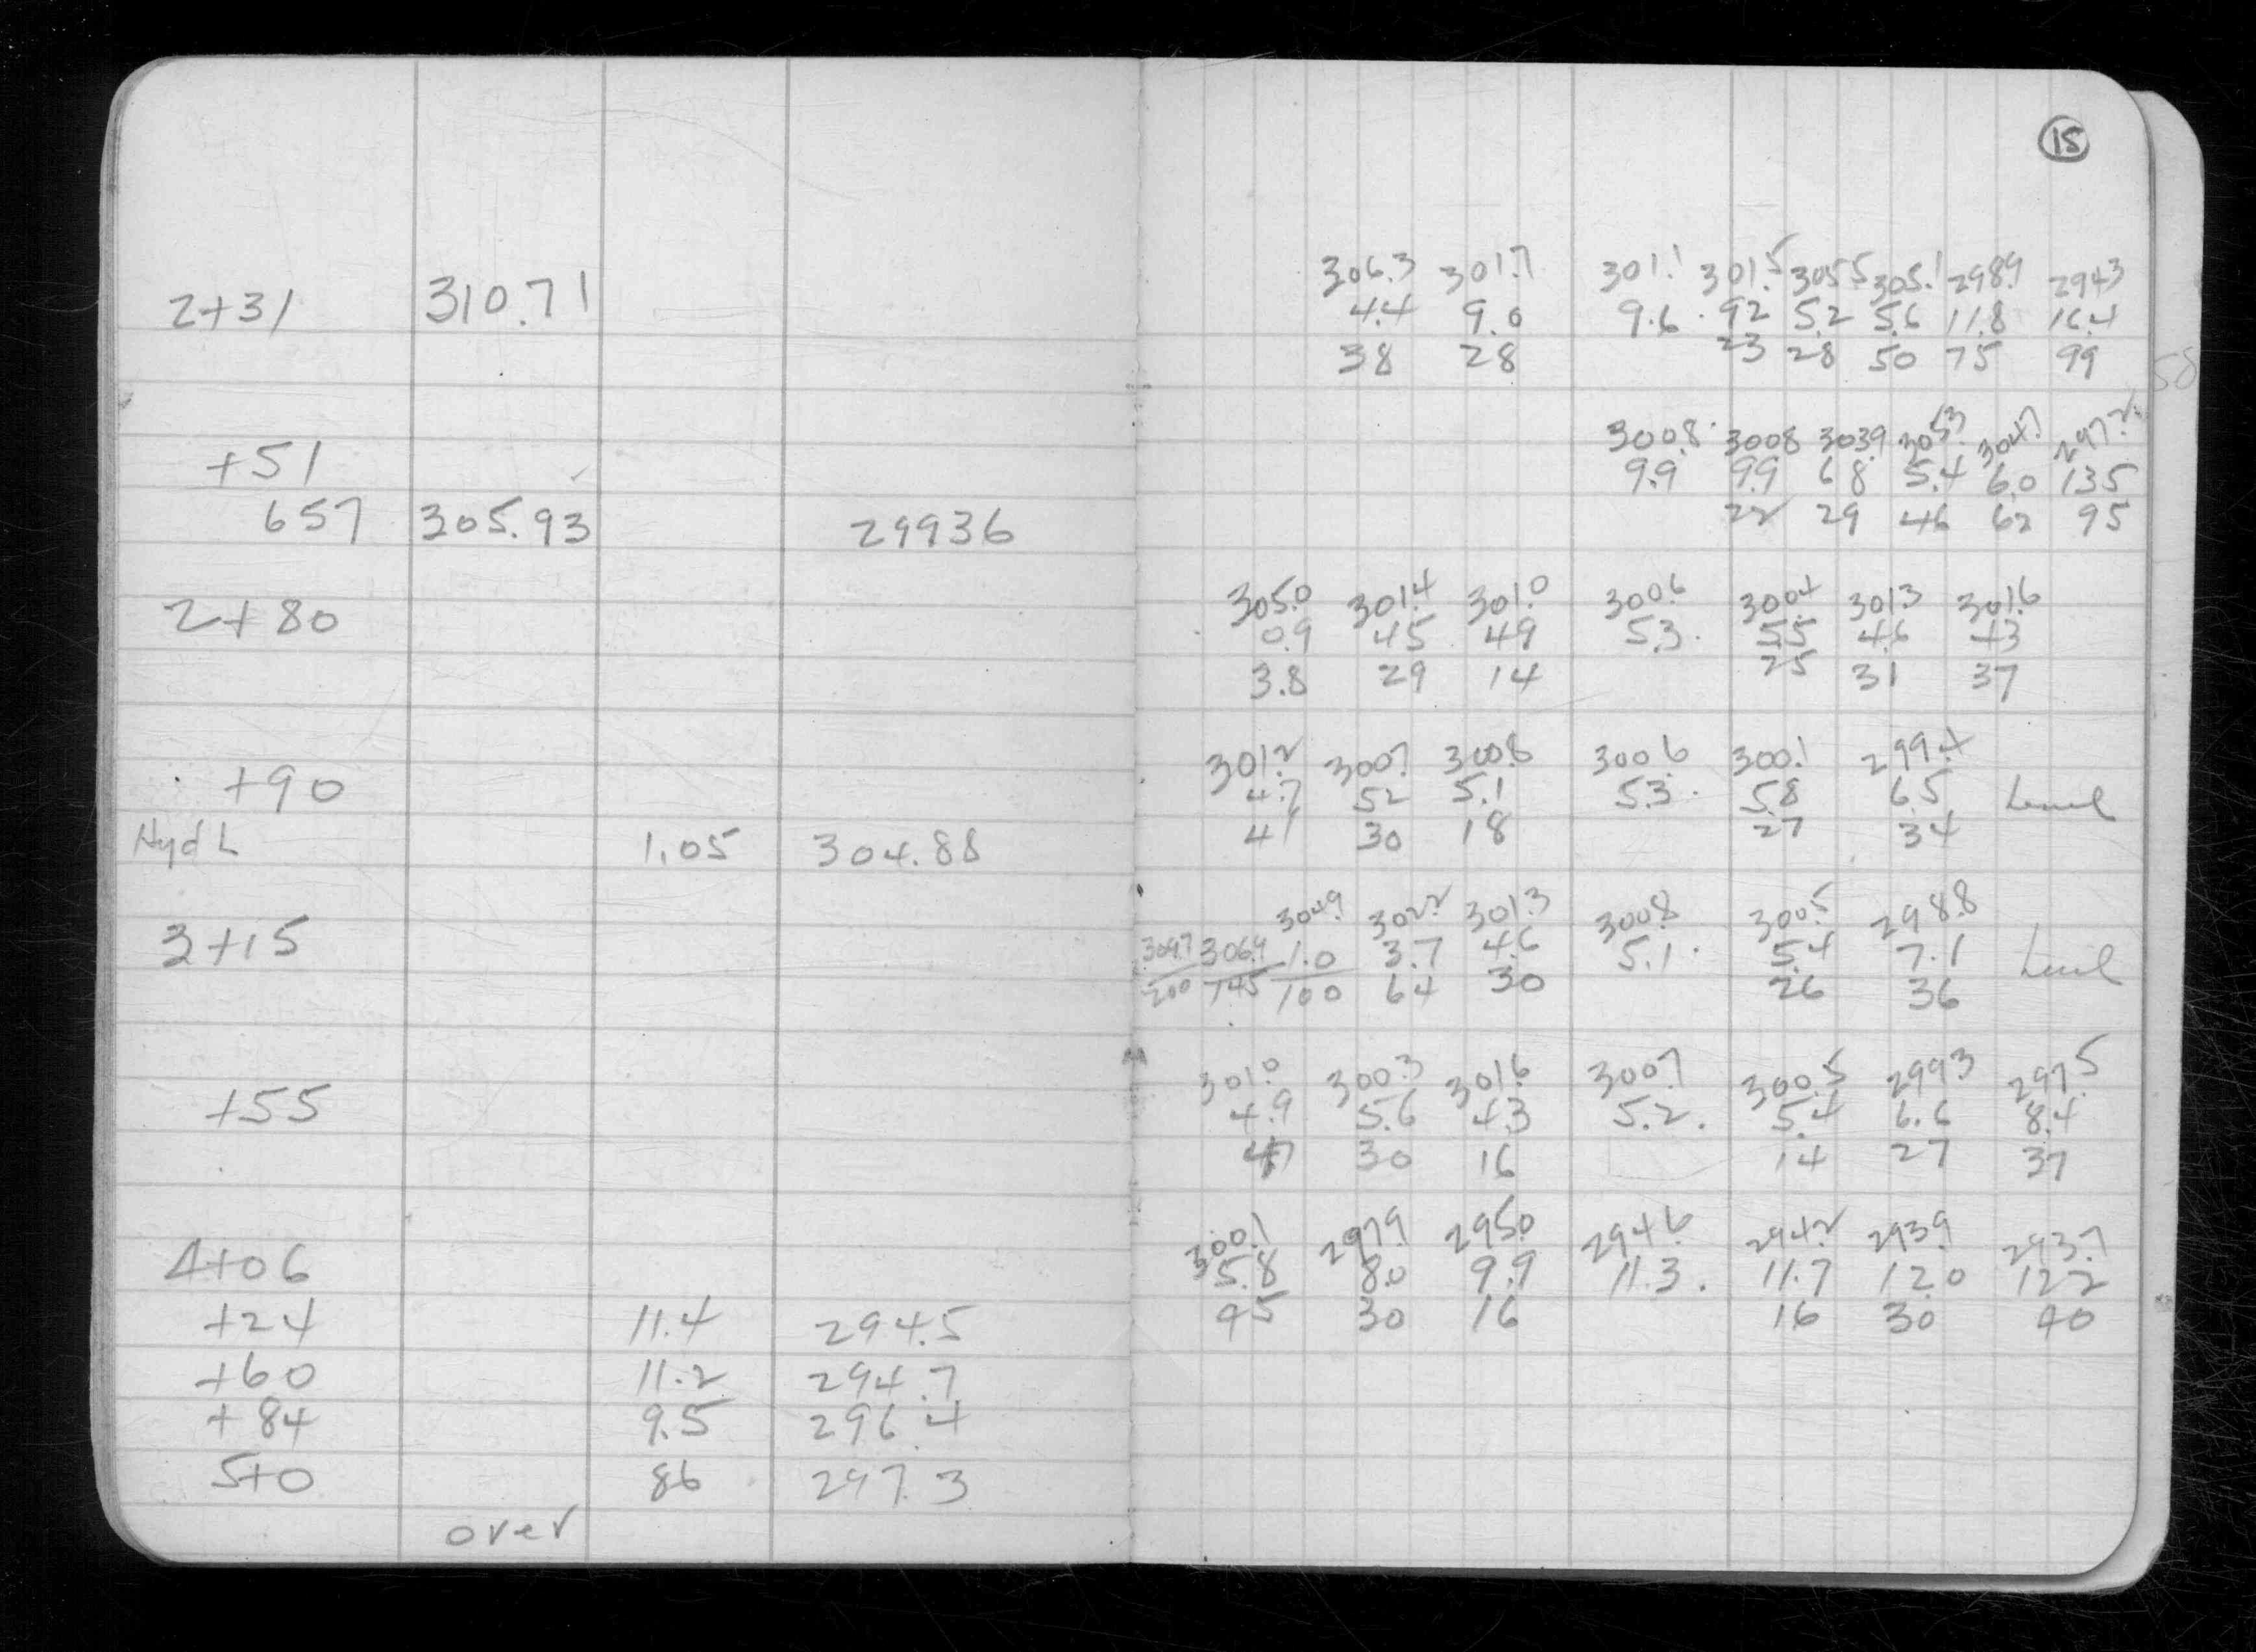 15
2+31 310.71
306.3 301.7 301.1 301.5 305.5 305.1 298.9 294.3
4.4 9.0 9.6 . 92 5.2 5.6 11.8 16.4
38 28 23 28 50 75 99
58
+51
300.8 3008 303.9 305.3 304.7 297.2
9.9 9.9 68 5.4 6.0 135
22 29 46 62 95
657 305.93 29936
2+80
305.0 301.4 301.0 300.6 300.4 301.3 301.6
0.9 45 49 53. 55 4.6 43
3.8 29 14 25 31 37
+90
301.2 300.7 300.8 300.6 300.1 299.4
4.7 52 5.1 5.3. 5.8 6.5 Level
41 30 18 27 34
Hyd L 1.05 304.88
3+15
304.9 302.2 301.3 300.8 300.5 298.8
309.7 306.9 1.0 3.7 4.6 5.1. 5.4 7.1 Level
200 145 100 64 30 26 36
+55
301.0 300.3 301.6 300.7 300.5 299.3 297.5
4.9 5.6 4.3 5.2. 5.4 6.6 8.4
47 30 16 14 27 37
4+06
300.1 297.9 295.0 294.6 294.2 293.9 293.7
5.8 8.0 9.9 11.3. 11.7 12.0 122
45 30 16 16 30 40
+24 11.4 294.5
+60 11.2 294.7
+84 9.5 296.4
5+0 86 297.3
over